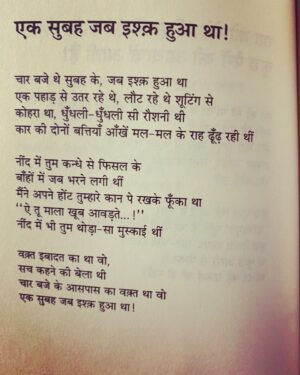 एक सुबह जब इश्क़ हुआ था!
चार बजे थे सुबह के, जब इश्क़ हुआ था
एक पहाड़ से उतर रहे थे, लौट रहे थे शूटिंग से
कोहरा था, धुँधली-धुँधली सी रौशनी थी
कार की दोनों बत्तियाँ आँखें मल-मल के राह ढूँढ़ रही थीं
नींद में तुम कन्धे से फिसल के
बाँहों में जब भरने लगी थीं
मैंने अपने होंट तुम्हारे कान पे रखके फूँका था
“ऐ तू माला खूब आवड़ते...!”
नींद में भी तुम थोड़ा-सा मुस्काई थीं
वक़्त इबादत का था वो,
सच कहने की बेला थी
चार बजे के आसपास का वक़्त था वो
एक सुबह जब इश्क़ हुआ था!